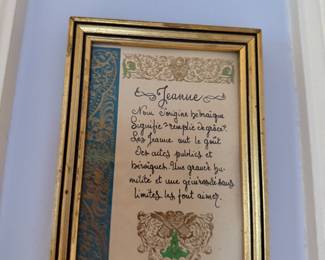 Jeanne
Nom d'origine hébraïque
Signifie "remplie de grâce".
Les Jeanne ont le goût
des actes publics et
héroïques. Une grande hu-
milité et une générosité sans
limites les font aimer.